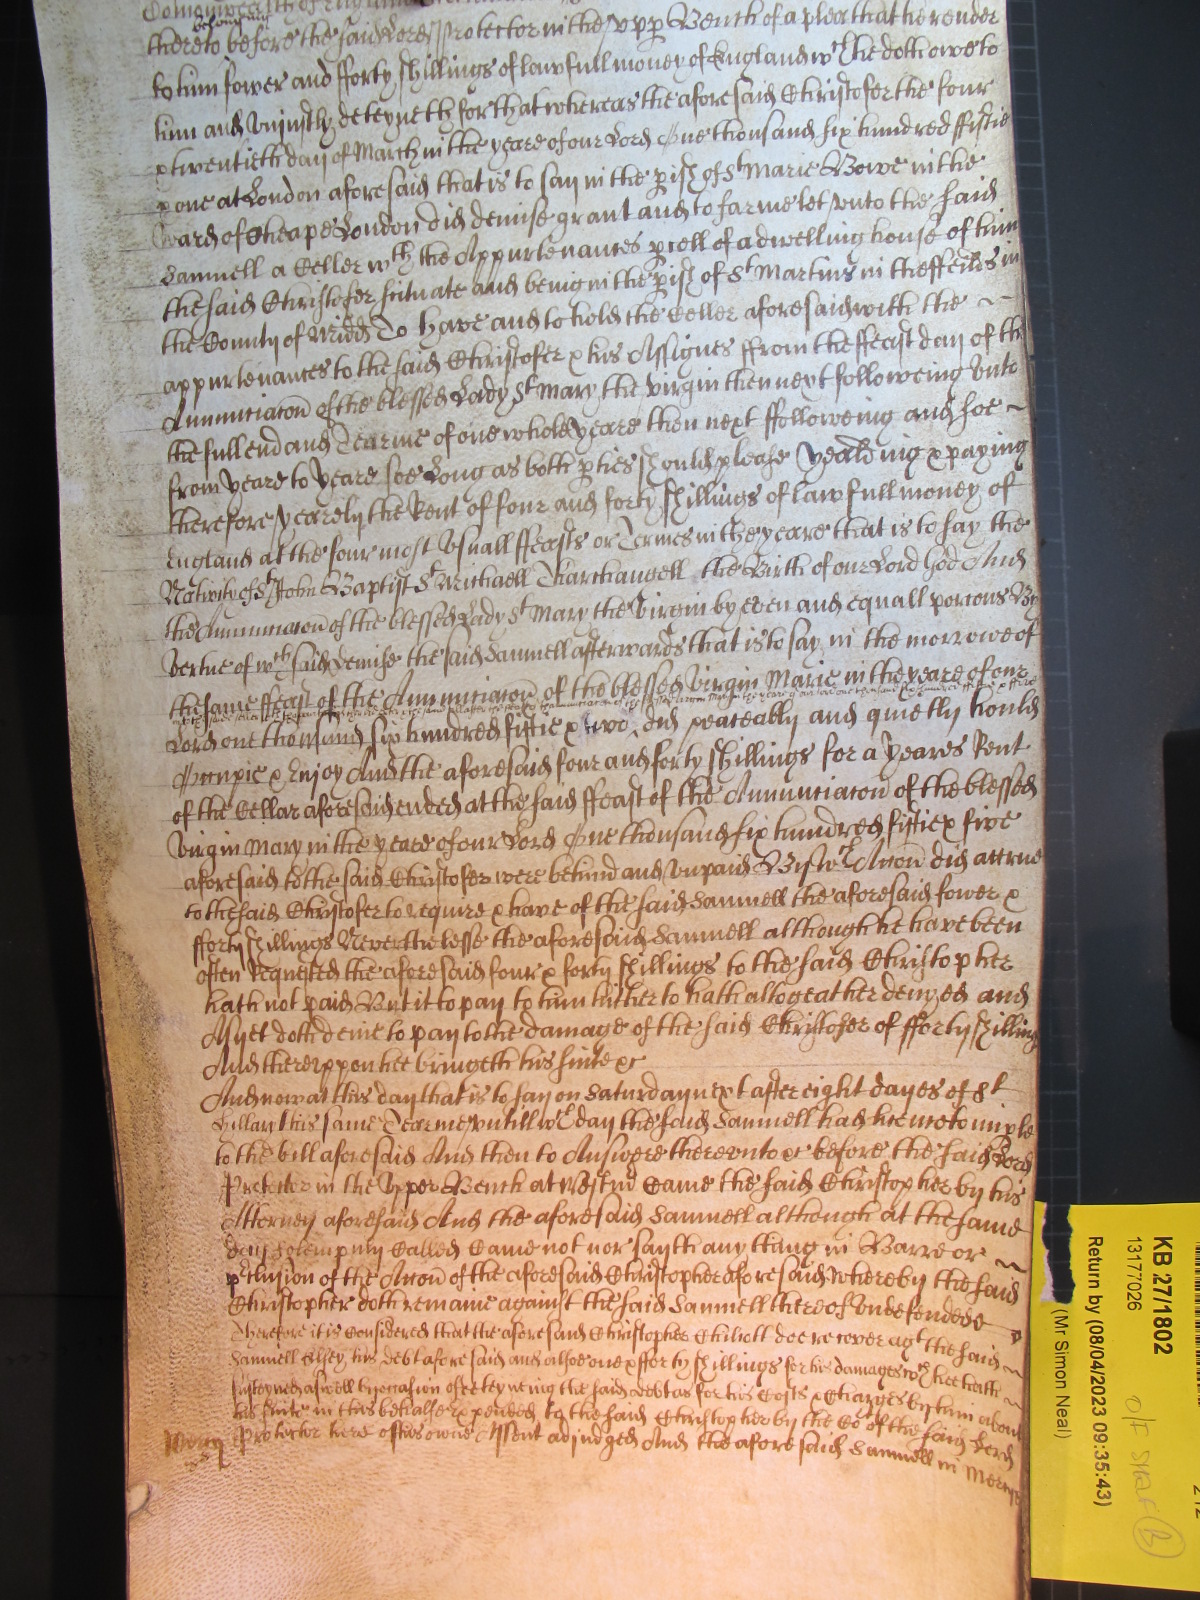 Comonwealth of England
belonging
thereto before the said Lord Protector in the Upp Bench of a plea that he render
to him fower and fforty shillings of lawfull money of England wch he doth owe to
him and uniustly deteyneth for that whereas the aforesaid Christofer the four
x twentieth day of March in the yeare of our Lord One thousand six hundred fiftie
x one at London aforesaid that is to say in the pish of St Marie Bowe in the
Ward of Cheape London did demise grant and to farme let unto the said
Samuell a Celler wth the Appurtenances pcell of a dwelling house of him
the said Christofer scituate and being in the pish of St Martins in the ffeilds in
the County of Midd To have and to hold the Celler aforesaid with the
appurtenances to the said Christofer x his Assignes ffrom the ffeast day of the
Annunciacon of the blessed Lady St Mary the Virgin then next followeing unto
the full end and Tearme of one whole yeare then next ffolloweing and soe
from yeare to yeare soe Long as both pties should please yealding x paying
therefore yearely the Rent of four and forty shillings of lawfull money of
England at the four most Usuall ffeasts or Termes in the yeare that is to say the
Nativity of St John Baptist St Michaell Tharchangell the Birth of our Lord God And
the Annunciacon of the blessed Lady St Mary the Virgin by even and equall porcons By
vertue of wch said demise the said Samuell afterwards that is to say in the morrowe of
the same ffeast of the Annunciacon of the blessed Virgin Marie in the yeare of our
Lord one thousand six hundred fiftie x two did peaceably and quietly hould
Occupie x Enjoy And the aforesaid four and forty shillings for a yeares Rent
of the Cellar aforesaid ended at the said ffeast of the Annunciacon of the blessed
Virgin Mary in the yeare of our Lord One thousand six hundred fiftie x five
aforesaid to the said Christofer were behind and unpaid By wch Accon did accrue
to the said Christofer to require x have of the said Samuell the aforesaid fower x
fforty shillings Neverthelesse the aforesaid Samuell although he have been
often Requested the aforesaid four x forty shillings to the said Christopher
hath not paid But it to pay to him hitherto hath altogeather denyed and
As yet doth denie to pay to the damage of the said Christofer of fforty shillings
And thereuppon hee bringeth his suite xc
And now at this day that is to say on Saturday next after eight dayes of St
Hillary this same Tearme untill wch day the said Samuell had licence to imple
to the bill aforesaid And then to Answere thereunto xc before the said Lord
Protector in the Upper Bench at Westmr Came the said Christopher by his
Attorney aforesaid And the aforesaid Samuell although at the same
day solempnly Called Came not nor sayth any thing in Barre or
pclusion of the Accon of the aforesaid Christopher aforesaid Whereby the said
Christopher doth remaine against the said Samuell thereof Undefended
Therefore it is Considered that the aforesaid Christopher doe recover agt the said
Samuell his debt aforesaid and alsoe one x fforty shillings for his damages wch hee hath
susteyned aswell by occasion of deteyneing the said debt as for his Costs x Charges by him about
his suite in this behalfe expended to the said Christopher by the Co of the said Lord
Mercy Protector here of his owne Assent adjudged And the aforesaid Samuell in Mercy
KB 27/1802
13177026
Return by (08/04/2023 09:35:43)
(Mr Simon Neal)